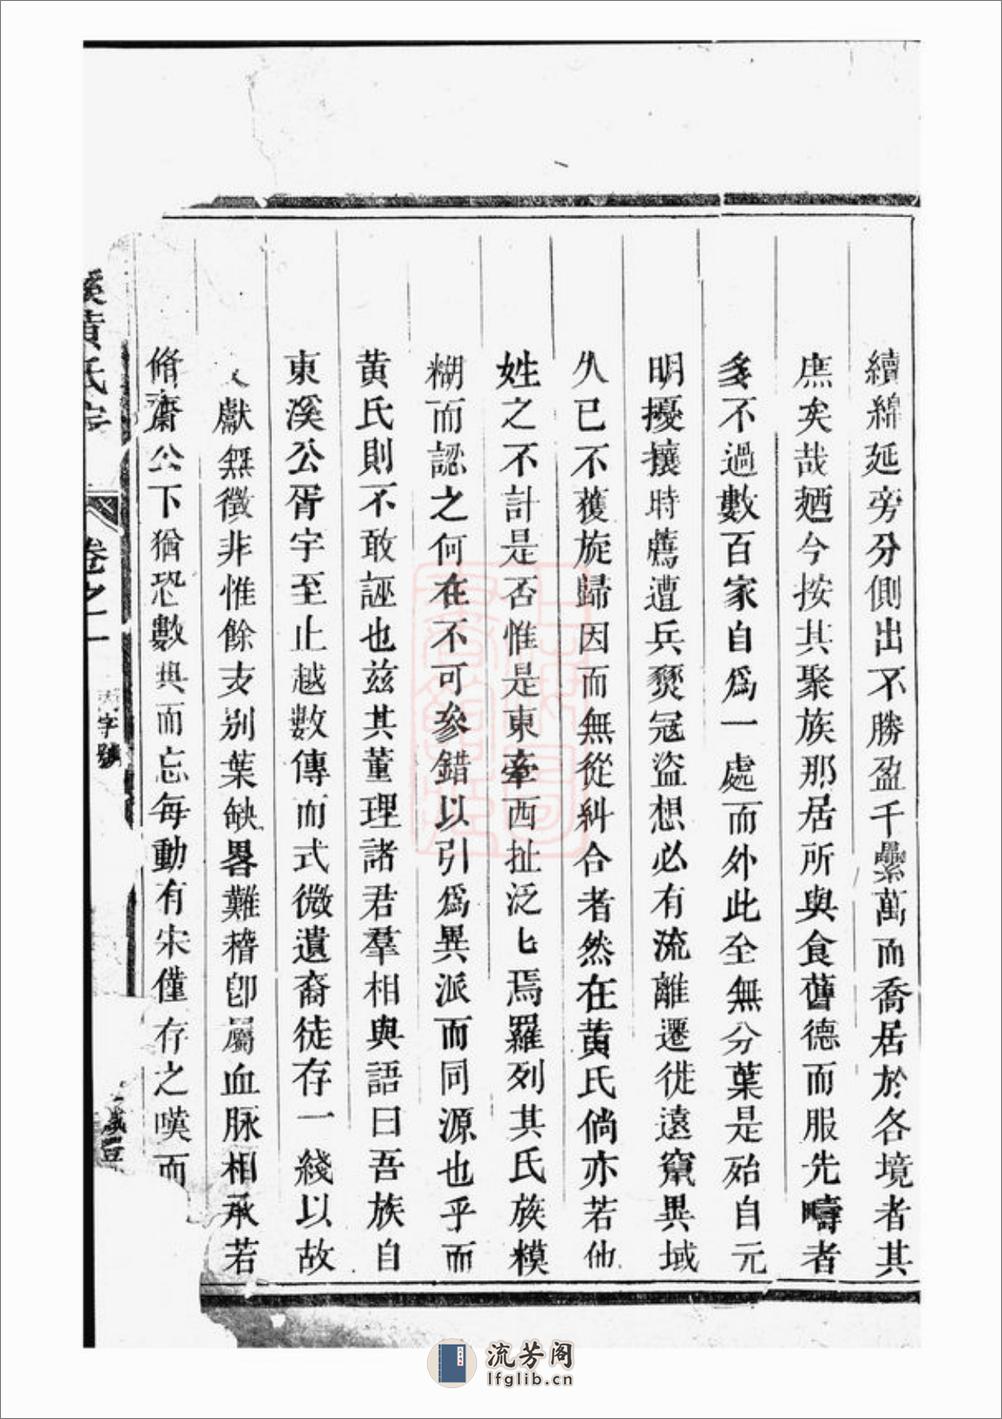 續綿延旁分側出不勝盈千纍萬而喬居於各境者其
庶矣哉廼今按其聚族那居所與食舊德而服先疇者
多不過數百家自爲一處而外此至無分葉是殆自元
明擾攘時薦遭兵燹冦盜想必有流離遷徙遠竄異域
久已不獲旋歸因而無從糾合者然在黄氏倘亦若他
姓之不計是否惟是東牽西扯泛七焉羅列其氏族模
糊而認之何在不可參錯以引爲異派而同源也乎而
黄氏則不敢誣也兹其董理諸君羣相與語曰吾族自
東溪公胥宇至止越數傳而式微遺裔徒存一綫以故
獻無徵非惟餘支别葉缺畧難稽卽屬血脉相承若
脩齋公下猶恐數典而忘每動有宋僅存之嘆而
溪黄氏宗
卷之一
字號
流芳阁
lfglib.cn